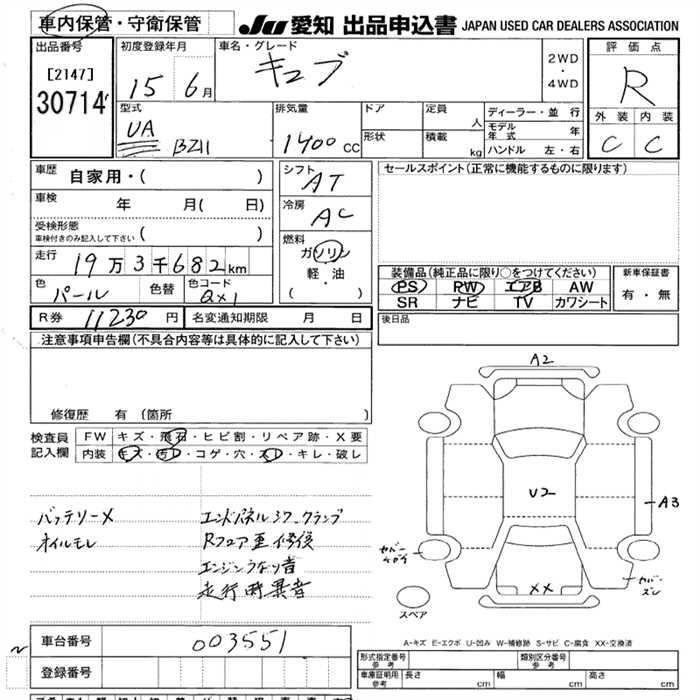 車内保管・守衛保管
JU 愛知 出品申込書 JAPAN USED CAR DEALERS ASSOCIATION
出品番号
[2147]
30714
初度登録年月
15 6月
車名・グレード
キューブ
2WD
・
4WD
評価点
R
外装 内装
C C
型式
UA
BZ11
排気量
1400 CC
ドア
形状
定員
人
積載
kg
ディーラー・並行
モデル年式 年
ハンドル 左・右
車歴
自家用・( )
車検
年 月( 日)
受検形態
車検付きのみ記入して下さい ( )
走行
19万3千682km
色
パール
色替
色コード
QX1
シフト
AT
冷房
AC
燃料
ガソリン
軽・油
( ・ )
セールスポイント(正常に機能するものに限ります)
装備品(純正品に限り○をつけてください)
PS PW エアB AW
SR ナビ TV カワシート
新車保証書
有・無
R券 11230 円
名変通知期限 月 日
後日品
注意事項申告欄(不具合内容等は具体的に記入して下さい)
修復歴 有(箇所
検査員
記入欄
FW キズ・飛石・ヒビ割・リペア跡・X要
内装 キズ・汚レ・コゲ・穴・スレ・キレ・破レ
バッテリーメ
オイルモレ
エンドパネル
Rフロア
エンジンうなり音
走行時異音
A2
U2
A3
XX
カバー
カバー
ズレ
スペア
A-キズ E-エクボ U-凹み W-補修跡 S-サビ C-腐食 XX-交換済
車台番号
003551
登録番号
形式指定番号
参考
類別区分番号
参考
車庫証明用
参考
長さ cm
幅 cm
高さ cm